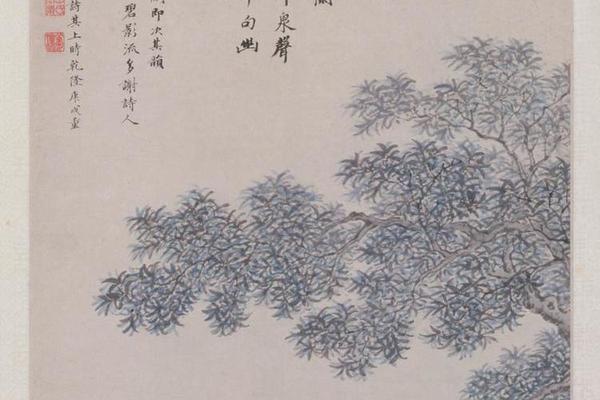 泉聲
句幽
即次其韻
碧影流多謝詩人
詩其上時乾隆庚戌重